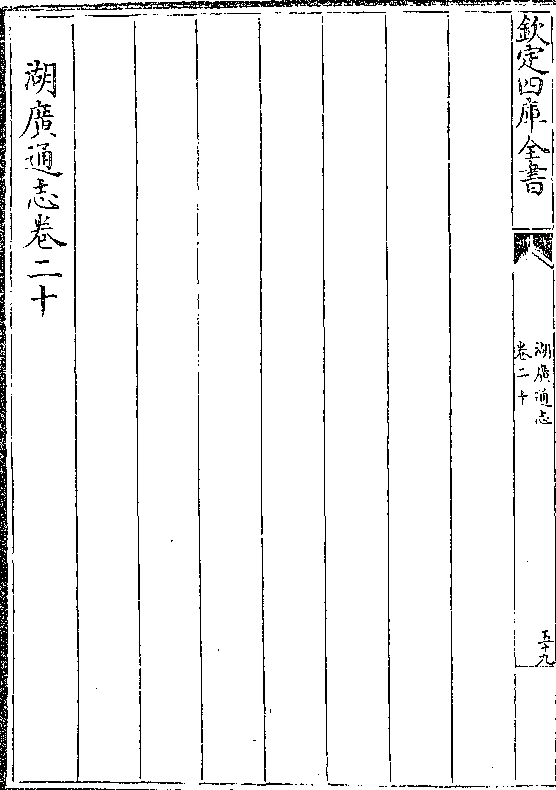 欽定四庫全書
湖廣通志
卷二十
五十九
湖廣通志卷二十